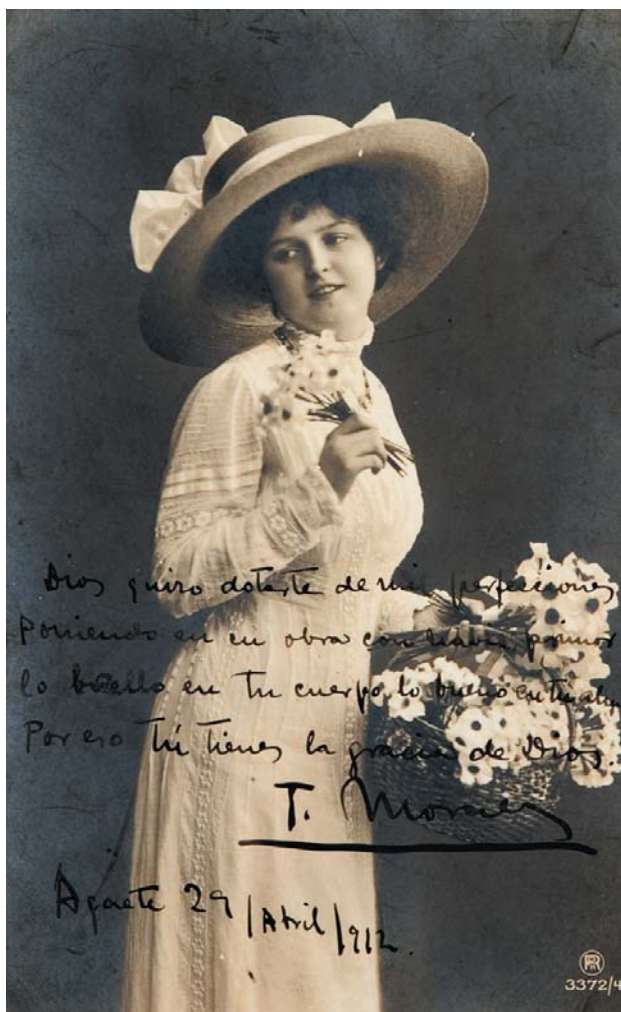 Dios quiso dotarte de mil perfecciones
Poniendo en su obra con primor
lo bello en tu cuerpo, lo bueno en tu alma
Por eso tú tienes la gracia de Dios.
T. Morales
Agaete 29/Abril/912.
3372/4